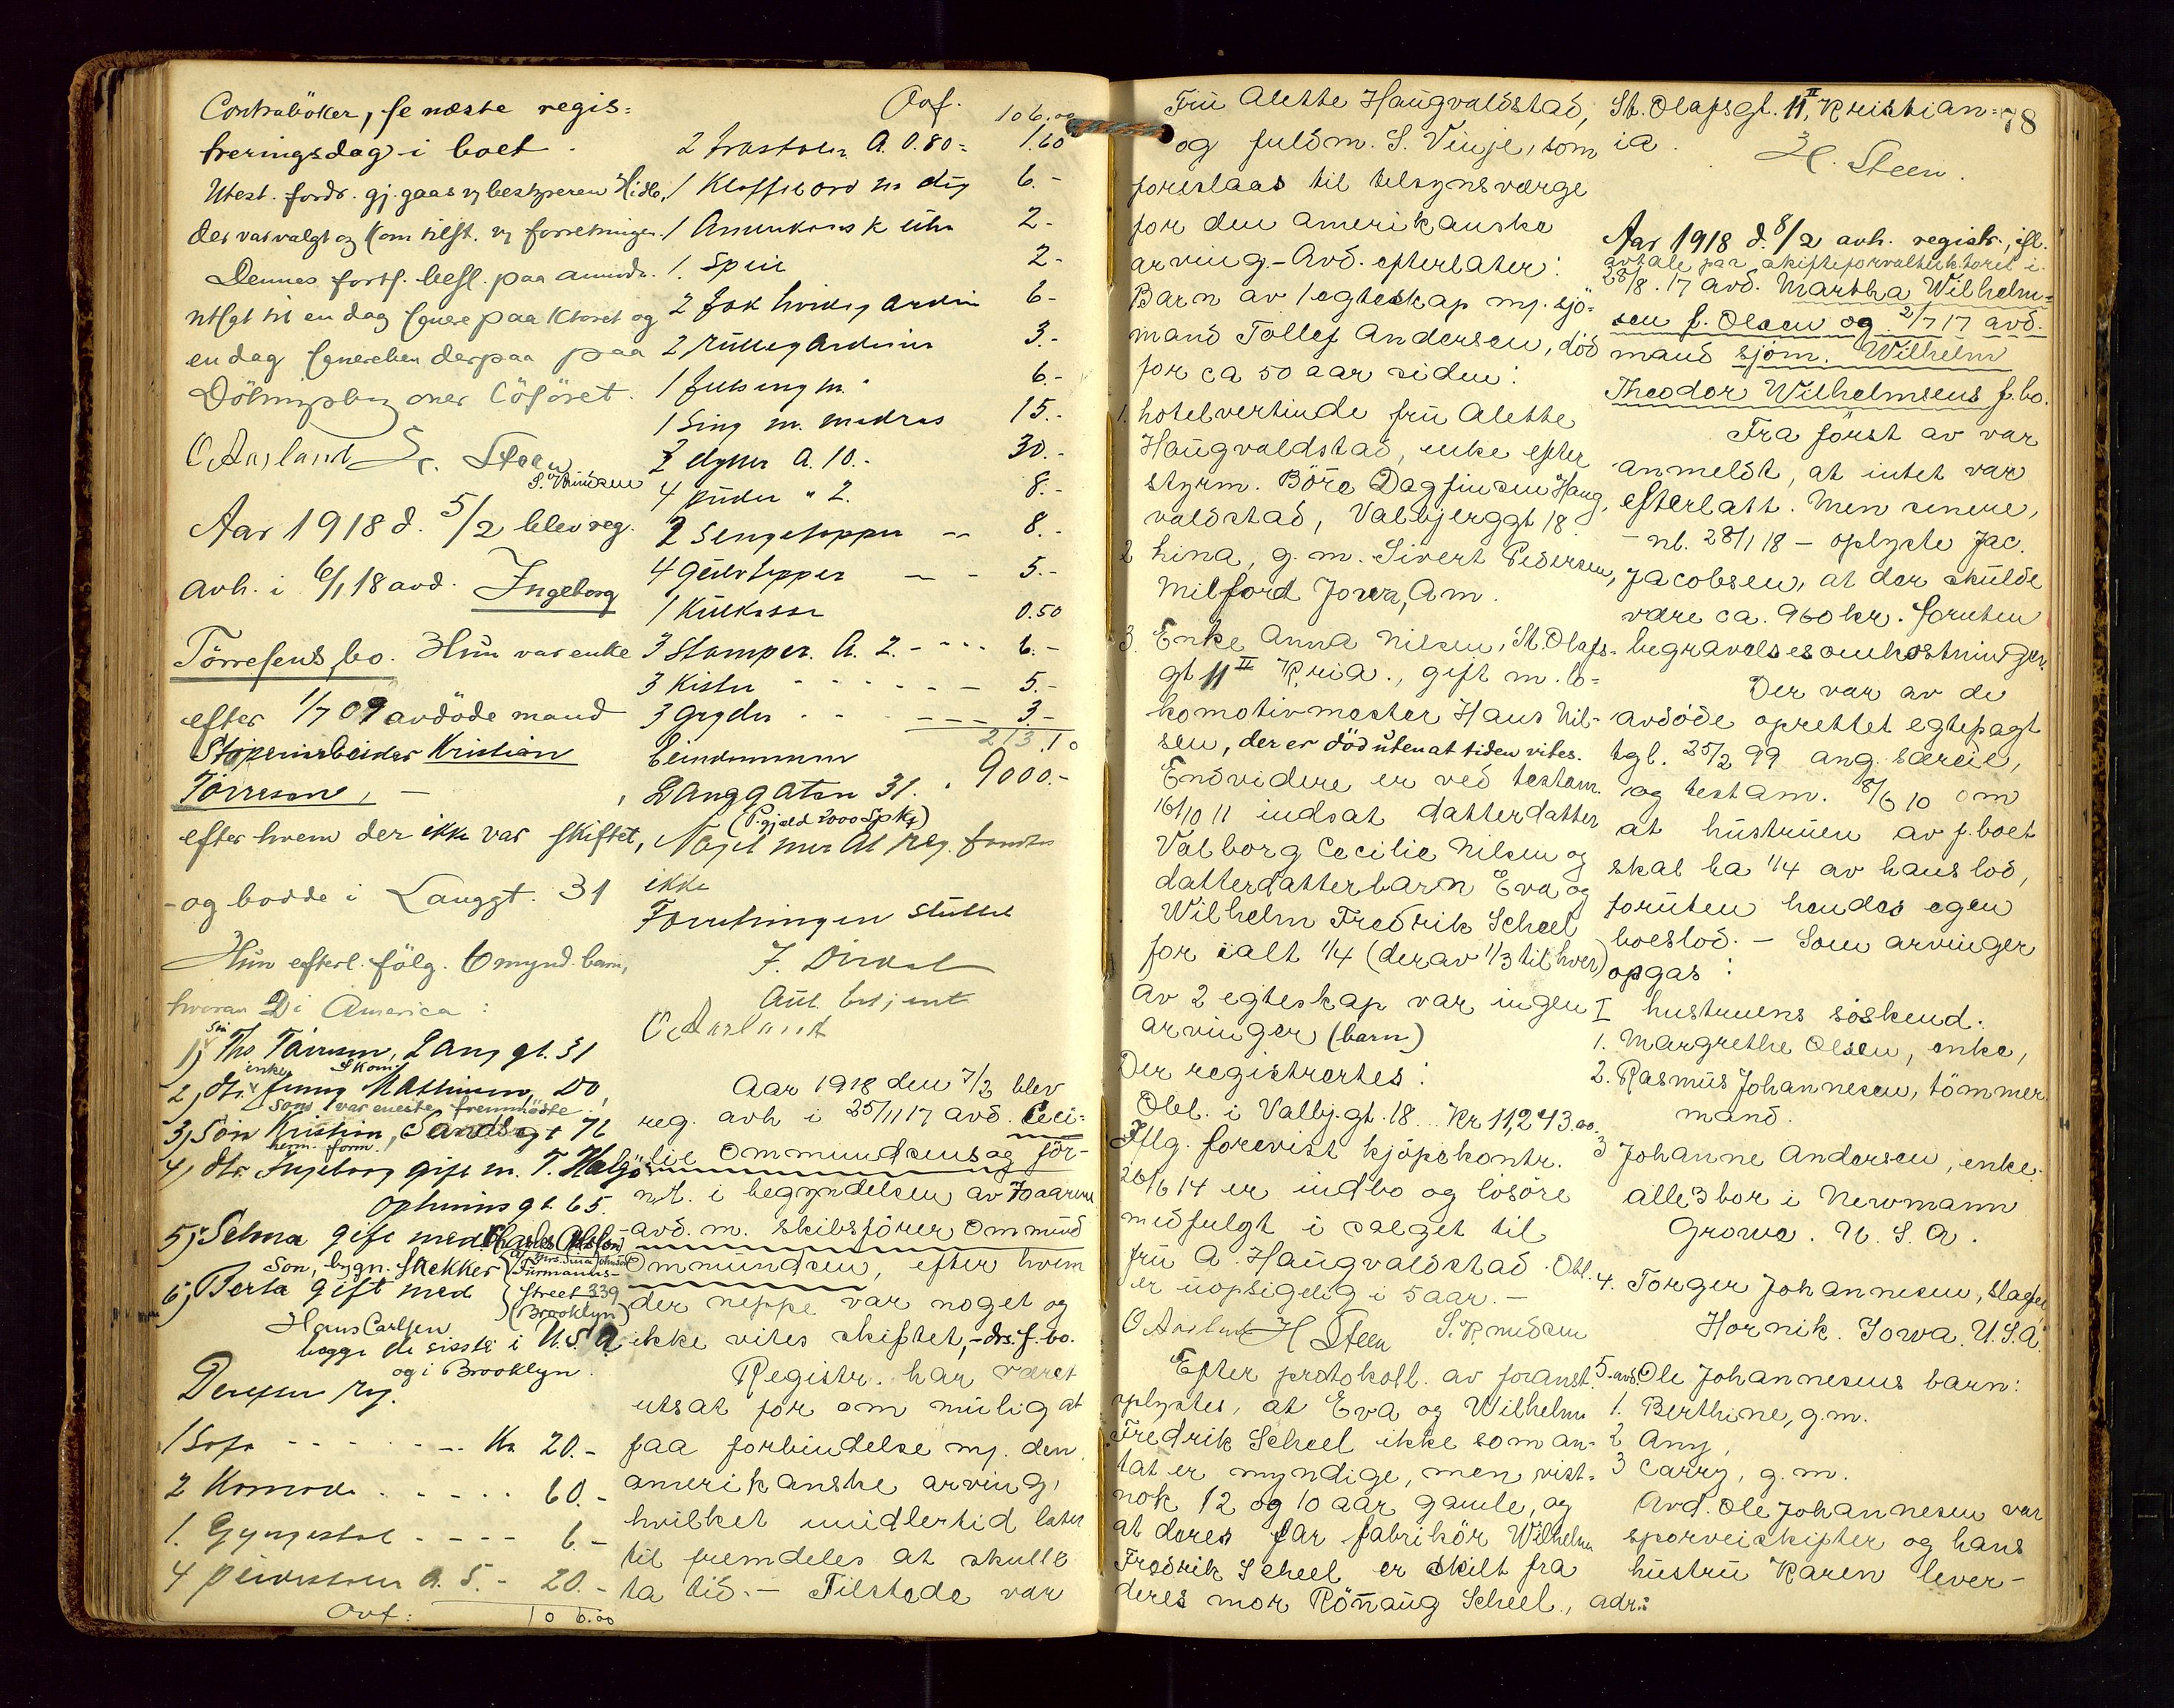 Contrabøker, se næste regis-
treringsdag i boet.
Utest. fordr. gj.gaas v/ bestyreren
der var valgt og kom tilst. v/ forretningen.
Dennes forts. besl. paa
til en dag senere paa Ktoret og
en dag senere paa
over Løsøret.
O Aarland St. Steen
S. Knudsen
Aar 1918 d. 5/2 blev reg.
avh. i 6/1 18 avd. Ingeborg
Törresens bo. Hun var enke
efter 1/7 09 avdöde mand
Støperiarbeider Kristian
Törresen, -
efter hvem der ikke var skiftet,
- og bodde i Langgt. 31
Hun efterl. fölg. 6 mynd. barn,
hvorav 2 i America:
1) Søn Ths. Törresen, Langgt. 31
2, dtr. enke Jenny Mathisen, Do
Sønn var eneste fremmödte.
3) Sön Kristian, Sandsgt 72
4, dtr. Ingeborg gift m. T. Helgö
gt. 65.
5) Selma gift med Charles
Son, bygn. Snekker
6) Berta gift med
Hans Carlsen
Street 339
(Brooklyn)
begge de sisste i U.S.A
og i Brooklyn.
Derefter reg.
1 Sofa - - - - - - Kr 20.-
2 Komode . . . . . 60.-
1. Gyngestol - - - - 6.-
4 pindestoler a. 5.- 20.-
Ovf: 106.00
Ovf. 106.00
2 træstoler A. 0.80 = 1.60
1 Klaffebord 6.-
1 Amerikansk uhr 2-
1. Speil 2-
2 fak hvide gardin 6-
2 rullegardiner 3.-
1 6.-
1 Seng m. madras 15.-
3 dyner A. 10.- 30.-
4 puder " 2. 8.-
2 Sengetepper -- 8.-
4 gulvtepper - - 5.-
1 Kulkasse 0.50
3 Stamper. A. 2.- - - - 6.-
3 Kister - - - - - - 5.-
3 gryder . - - - - - 3.-
213.10
Eiendommen
Langgaten 31. . 9000.-
(P.gjæld 2000 Spks)
Noget mer at reg. fandtes
ikke
Forretningen sluttet
F. Dirdal
Aut. betjent
O Aarland
Aar 1918 den 7/2 blev
reg. avh i 25/11 17 avd. Ceci-
lie Ommundsens og för-
nt. i begyndelsen av 70 aarene
avd. m. skibsförer Ommund
Ommundsen, efter hvem
der neppe var noget og
ikke vites skiftet, - drs. f. bo.
Registr. har været
utsat for om mulig at
faa forbindelse mf. den
amerikanske arving,
hvilket imidlertid later
til fremdeles at skulle
ta tid. - Tilstede var
Fru Alette Haugvaldstad,
og fuldm. S. Vinje, som
foreslaas til tilsynsværge
for den amerikanske
arving. - Avd. efterlater:
Barn av 1 egteskap mf. sjö-
mand Tollef Andersen, död
for ca 50 aar siden:
1. hotelvertinde fru Alette
Haugvaldstad, enke efter
styrm. Böre Dagfinsen Haug-
valdstad, Valbjerggt 18.
2 hina, g. m. Sivert Pedersen,
Milford Jowa, Am.
3. Enke Anna Nilsen, St. Olafs-
gt 11 II Kria., gift m. lo-
komotivmester Hans Nil-
sen, der er död uten at tiden vites.
Endvidere er ved testam.
16/10 11 indsat datterdatter
Valborg Cecilie Nilsen og
datterdatterbarn Eva og
Wilhelm Fredrik Scheel
for ialt 1/4 (derav 1/3 til hver)
Av 2 egteskap var ingen
arvinger (barn)
Der registrertes:
Obl. i Valbj.gt. 18... Kr 11,243.00.
Iflg. forevist kjöpekontr.
26/6 14 er indbo og lösöre
medfulgt i salget til
fru A. Haugvaldstad. Obl.
er uopsigelig i 5 aar. -
O Aarland H Steen S. Knudsen
Efter protokoll. av foranst.
oplystes, at Eva og Wilhelm
Fredrik Scheel ikke som an-
tat er myndige, men vist-
nok 12 og 10 aar gamle, og
at deres far fabrikör Wilhelm
Fredrik Scheel er skilt fra
deres mor Rönnaug Scheel, adr.:
78
St. Olafsgt. 11 II, Kristian-
ia.
H. Steen.
Aar 1918 d. 8/2 avh. registr., ifl.
avtale paa skifteforvalterktoret i
28/8. 17 avd. Martha Wilhelm-
sen f. Olsen og 2/7 17 avd.
mand sjöm. Wilhelm
Theodor Wilhelmsens f. bo.
Fra först av var
anmeldt, at intet var
efterlatt. Men senere,
- nl. 28/1 18 - oplyste Jac.
Jacobsen, at der skulde
være ca. 960 kr. foruten
begravelsesomkostninger.
Der var av de
avdöde oprettet egtepagt
tgl. 25/2 99 ang. særeie,
og testam. 8/6 10 om
at hustruen av f.boet
skal ha 1/4 av hans lod,
foruten hendes egen
boeslod. - Som arvinger
opgas:
I hustruens söskend:
1. Margrethe Olsen, enke,
2. Rasmus Johannesen, tömmer-
mand.
3 Johanne Andersen, enke.
alle 3 bor i Newmann
Growe. U. S. A.
4. Torger Johannesen, Slagter
Hornik. Jowa. U.S.A.
5. avd Ole Johannesens barn:
1. Berthine, g.m.
2 Any,
3 Carry, g. m.
Avd. Ole Johannesen var
sporveiskifter og hans
hustru Karen lever-